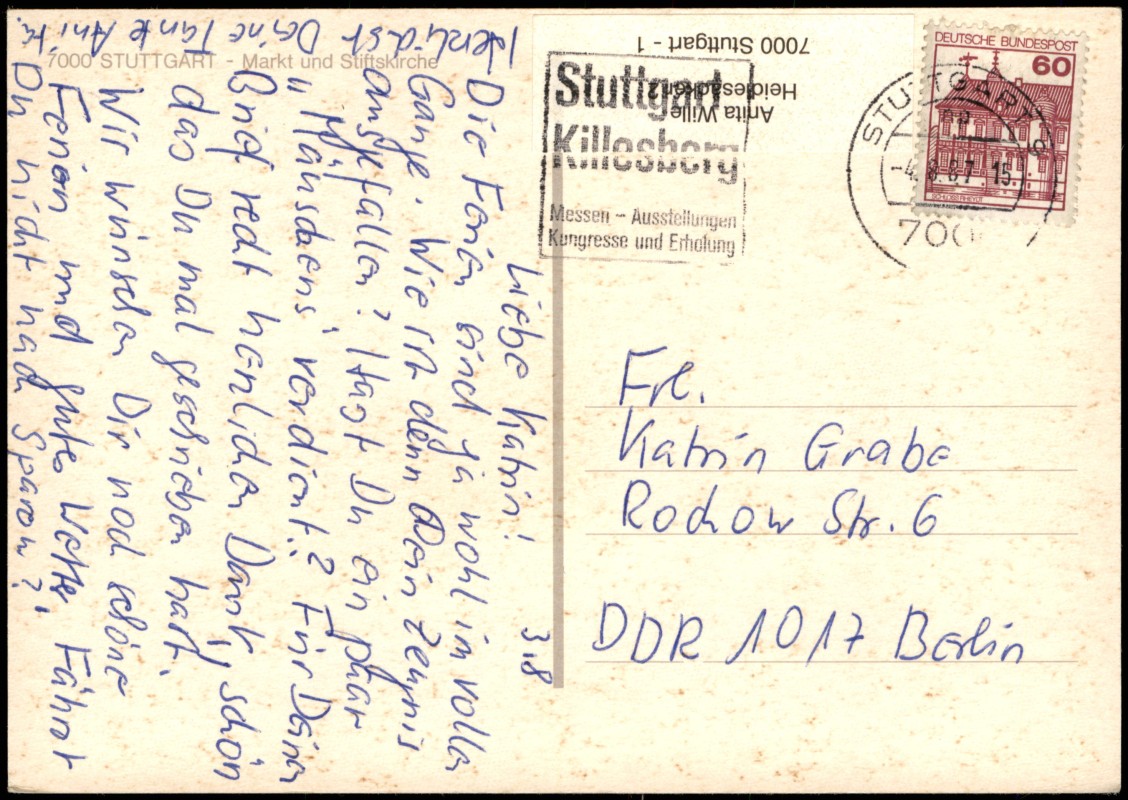 7000 STUTTGART - Markt und Stiftskirche
3.8
Liebe Katrin!
Die Ferien sind ja wohl in vollem
Gange. Wie ist denn Dein Zeugnis
ausgefallen? Hast Du ein paar
"Mäuschens" verdient? Für Deinen
Brief recht herzlichen Dank, schön
das Du mal geschrieben hast.
Wir wünschen Dir noch schöne
Ferien und gutes Wetter. Fährst
Du nicht nach Sparow?
Herzlichst Deine Tante Anita.
Anita Wille
Heidlesäcker 2
7000 Stuttgart - 1
Stuttgart
Killesberg
Messen - Ausstellungen
Kongresse und Erholung
STUTTGART
-4.8.87 15
700
DEUTSCHE BUNDESPOST
60
SCHLOSS RHEYDT
Frl.
Katrin Grabe
Rochow Str. 6
DDR 1017 Berlin